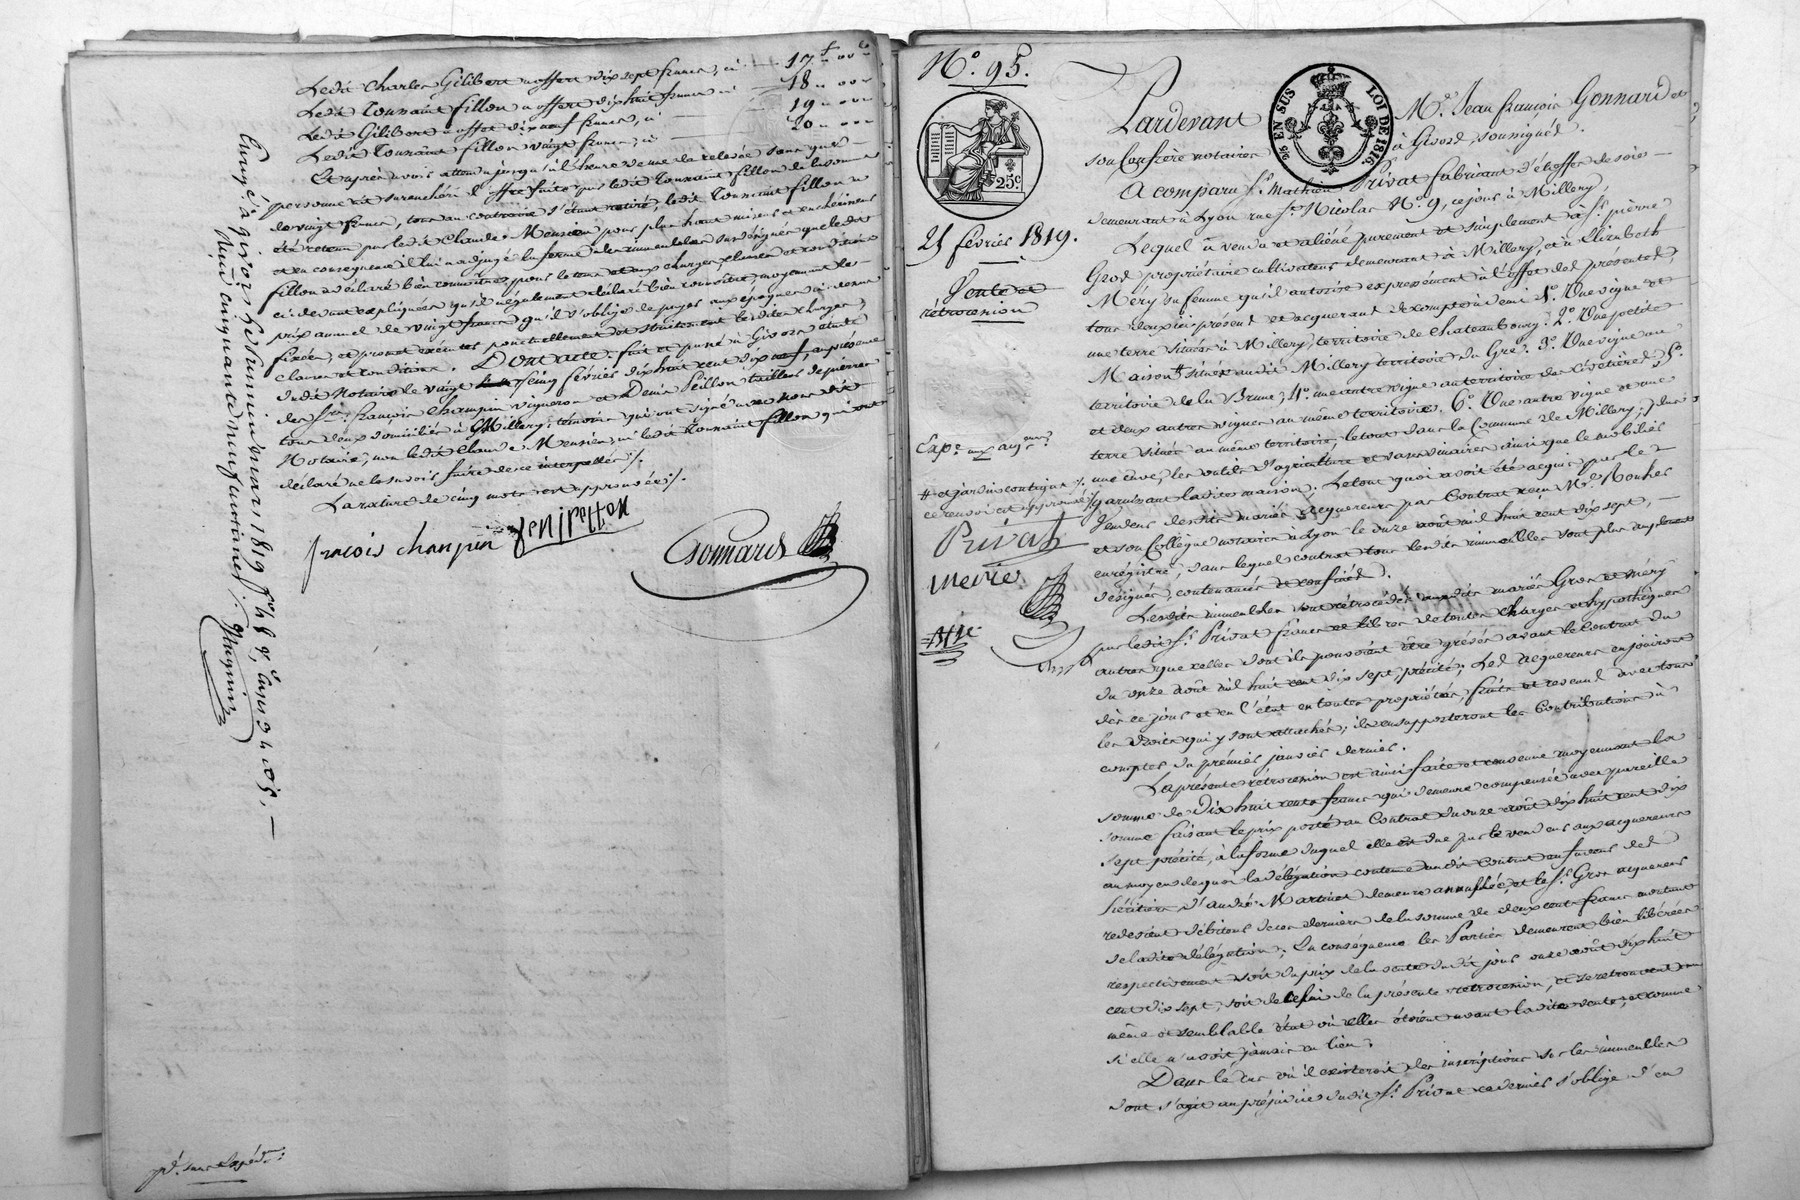 Ledit Charles Gilibert a offert dix sept francs, ci 17 f 00 c
Ledit Tousaint fillon a offert dix huit francs ci 18 .. 00
Ledit Gilibert a offert dix neuf francs, ci 19 .. 00
Ledit Tousaint fillon vingt francs, ci 20 .. 00
Et après avoir attendu jusqu'à l'heure de la relevée sans que
personne ait surenchéri l'offre faite par ledit Tousaint fillon de la somme
de vingt francs, tous au contraire s'étant retiré, ledit Tousaint fillon a
été retenu par ledit Claude Mensieu pour plus haut miseur et enchérisseur
et en conséquence il lui a adjugé la ferme des immeubles sus désignés que ledit
fillon a déclaré bien connoitre, sous les charges, clauses et conditions
ci devant expliquées qu'il a également déclaré bien connoître, moyennant le
prix annuel de vingt francs qu'il s'oblige de payer aux époques ci dessus
fixées, et promet exécuter ponctuellement et strictement lesdites charges,
clauses et conditions. Dont acte. fait et passé à Givors étude
dudit Notaire le vingt cinq février dix huit cent dix neuf, en présence
des Srs. françois Champin vigneron et Denis Peillon tailleur de pierres
tous deux domiciliés à Millery, témoins qui ont signé avec nous dit
Notaire, non ledit Claude Mensieu, ni ledit Tousaint fillon qui ont
déclaré ne le savoir faire de ce interpellés ./.
La rature de cinq mots est approuvée ./.
fracois champin
Gonnard
Enregé. à givors le huit mars 1819 fo. 48
reçu cinquante neuf centimes ./.
N°. 95.
25c.
2/10 EN SUS LOI DE 1816.
25 février 1819.
Vente et
rétrocession
Expé. aux acqrs.
# et jardin contigus ./.
ce renvoi est approuvé ./.
Privat
Pardevant Me. Jean françois Gonnard et
son Confrère notaires à Givors, soussignés.
A comparu Sr. Mathieu Privat fabricant d'étoffes de soie
demeurant à Lyon rue St. Nicolas No. 9, ce jour à Millery,
Lequel a vendu et aliéné purement et simplement à Sr. pierre
Gros, propriétaire cultivateur demeurant à Millery, et à Elizabeth
Méry sa femme qu'il autorise expressément à l'effet des présentes,
tous deux ici présent et acquerant de compte à demi 1°. Une vigne et
une terre situées à Millery, territoire de Chateaubourg. 2°. Une petite
Maison # située audit Millery territoire du Gré. 3°. Une vigne au
territoire de la Brune, 4°. une autre vigne au territoire des Civetières, 5°.
et deux autres vignes au même territoire. 6°. Une autre vigne et une
terre situées au même territoire, le tout dans la Commune de Millery; plus
une cuve, les outils d'agriculture et vases vinaires ainsi que le mobilier
garnissant ladite maison; Le tout quoi avoit été acquis par le
Vendeur desdits mariés acquereurs par Contrat reçu Me. Rouher
et son Collègue notaires à Lyon le onze août mil huit cent dix sept,
enrégistré, dans lequel contrat tous lesdits immeubles sont plus amplement
désignés, contenancés et confinés.
Lesdits immeubles sont rétrocédés auxdits mariés Gros et Méry
par ledit Sr. Privat francs et libres de toutes charges et hypothèques
autres que celles dont ils pouvoient être grévés avant le Contrat du
du onze août mil huit cent dix sept, précité; Les acquereurs en jouiront
dès ce jour et en l'état en toutes propriétés, fruits et revenus avec tous
les droits qui y sont attachés; ils en supporteront les Contributions à
compter du prémier janvier dernier.
La présente rétrocession est ainsi faite et convenue moyennant la
somme de Dix huit cents francs qui demeure compensée avec pareille
somme faisant le prix porté au Contrat du onze août dix huit cent dix
sept précité, à la forme duquel elle est due par le vendeur aux acquereurs
au moyen de quoi la délégation contenue audit Contrat en faveur des
héritiers d'andré Martinet demeure annullée, et le Sr. Gros acquereur
redevient débiteur de ces derniers de la somme de deux cents francs montant
de ladite délégation; En conséquence les Parties demeurent bien libérées
respectivement soit du prix de la vente dudit jour onze août dix huit
cent dix sept, soit de celui de la présente rétrocession, et se retrouvent au
même et semblable état où elles étoient avant ladite vente, et comme
si elle n'avoit jamais eu lieu.
Dans le cas où il existeroit des inscriptions sur les immeubles
dont s'agit au préjudice dudit Sr. Privat ce dernier s'oblige d'en